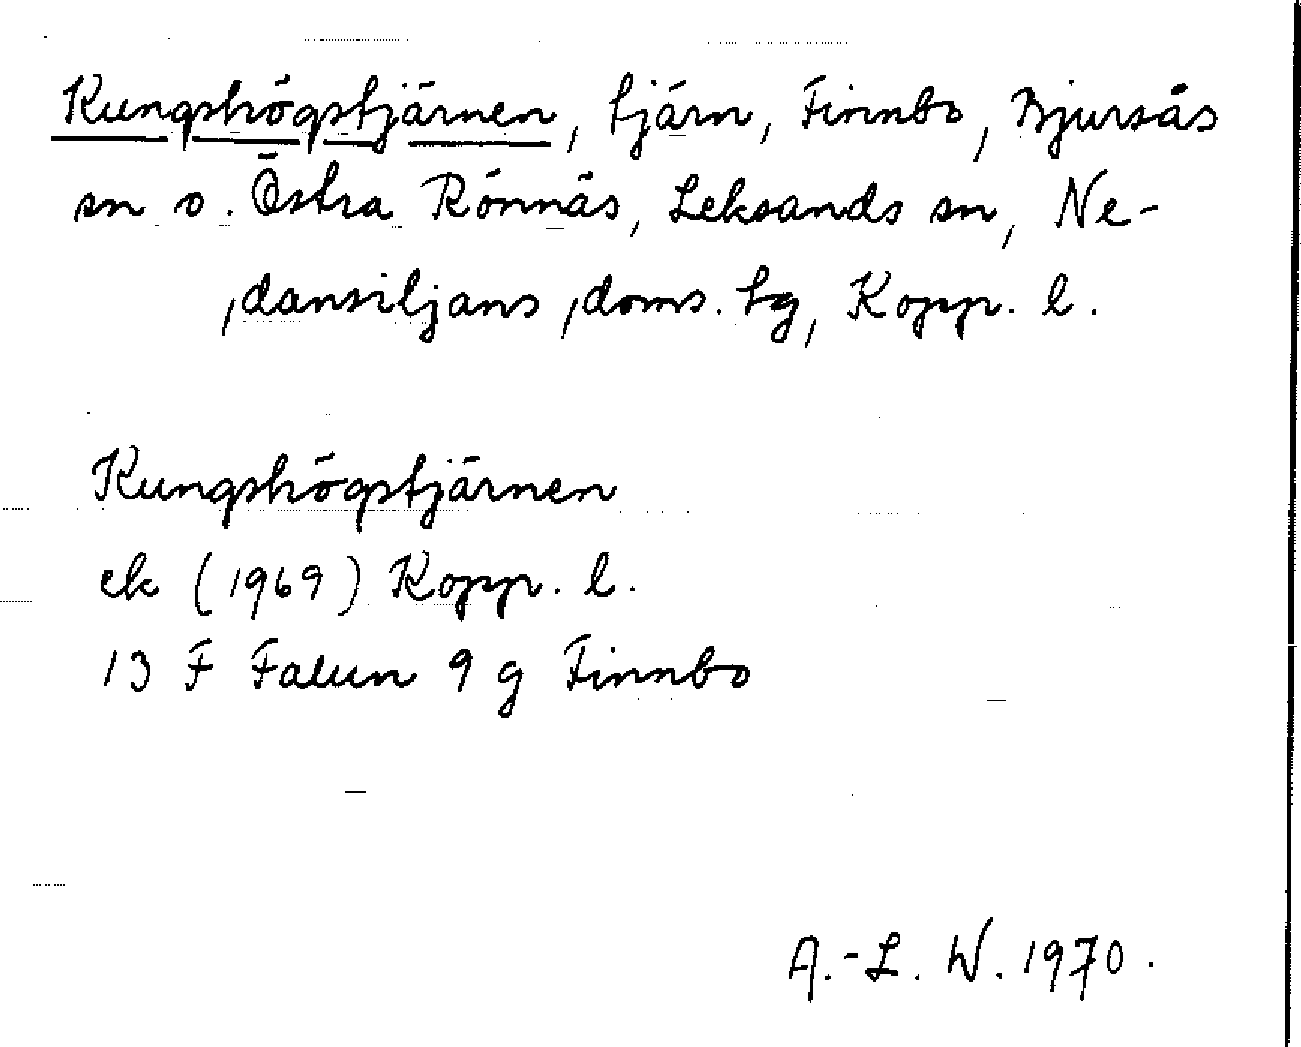 Kungshögstjärnen, tjärn, Finnbo, Bjursås
sn o. Östra Rönnäs, Leksands sn, Ne-
dansiljans doms. tg, Kopp. l.
Kungshögstjärnen
ek (1969) Kopp. l.
13 F Falun 9 g Finnbo
A.-L. W. 1970.